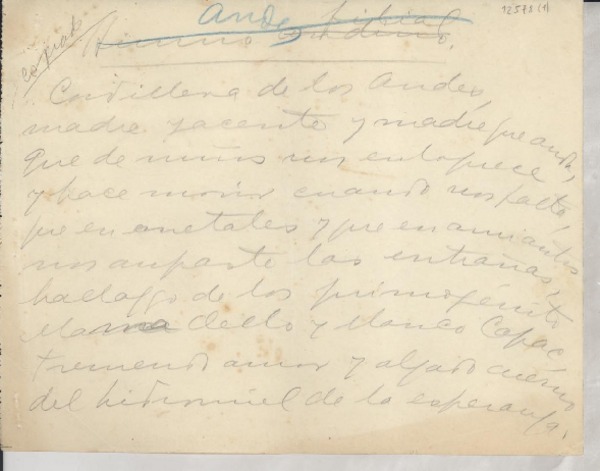 12573 (1)
copiado
Himno Andino.
Cordillera de los Andes,
madre yacente y madre que anda,
que de niños nos enloquece
y hace morir cuando nos falta,
que en metales y que en amiantos
nos aupaste las entrañas,
hallazgo de los primogénitos
Mama Ocllo y Manco Cápac
tremendo amor y alzado cuerno
del hidromiel de la esperanza.